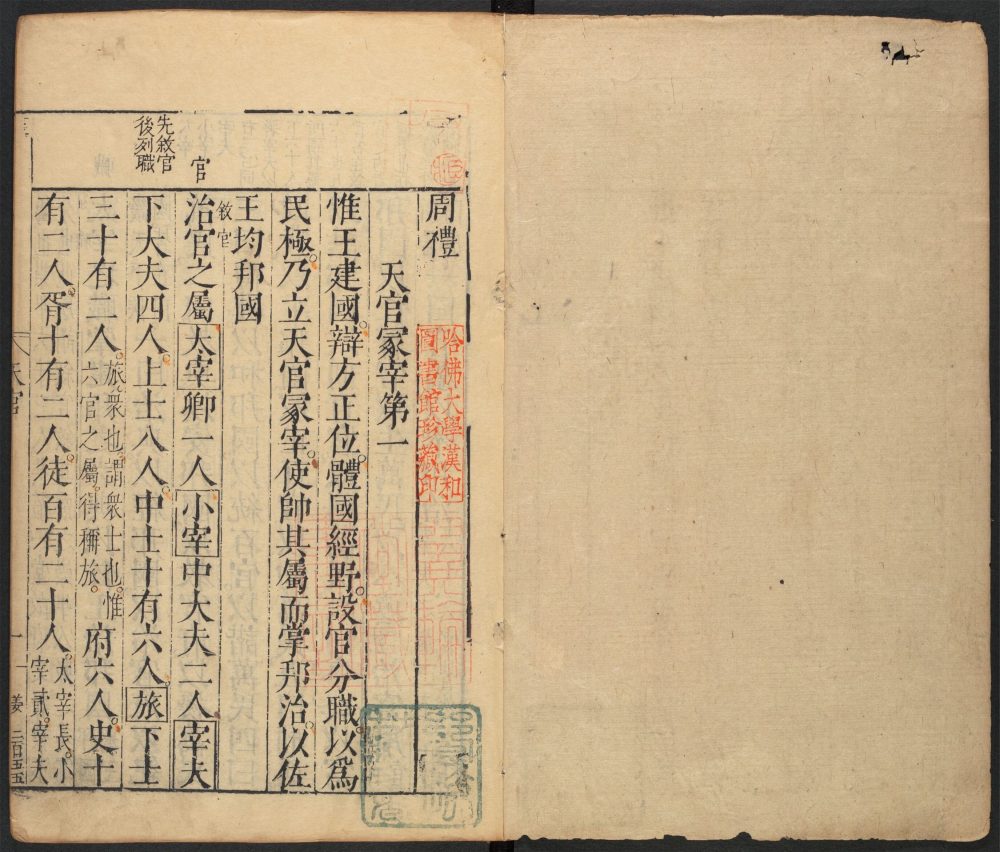 周禮
天官冢宰第一
惟王建國。辯方正位。體國經野。設官分職。以爲
民極。乃立天官冢宰。使帥其屬而掌邦治。以佐
王均邦國
敘官
官
治官之屬太宰卿一人小宰中大夫二人宰夫
先敘官
後列職
下大夫四人。上士八人。中士十有六人。旅下士
三十有二人。
旅。衆也。謂衆士也。惟
六官之屬。得稱旅。
府六人。史十
有二人。胥十有二人。徒百有二十人。
太宰長。小
宰貳。宰夫
天官
一
姜
二百五五
哈佛大學漢和
圖書館珍藏印